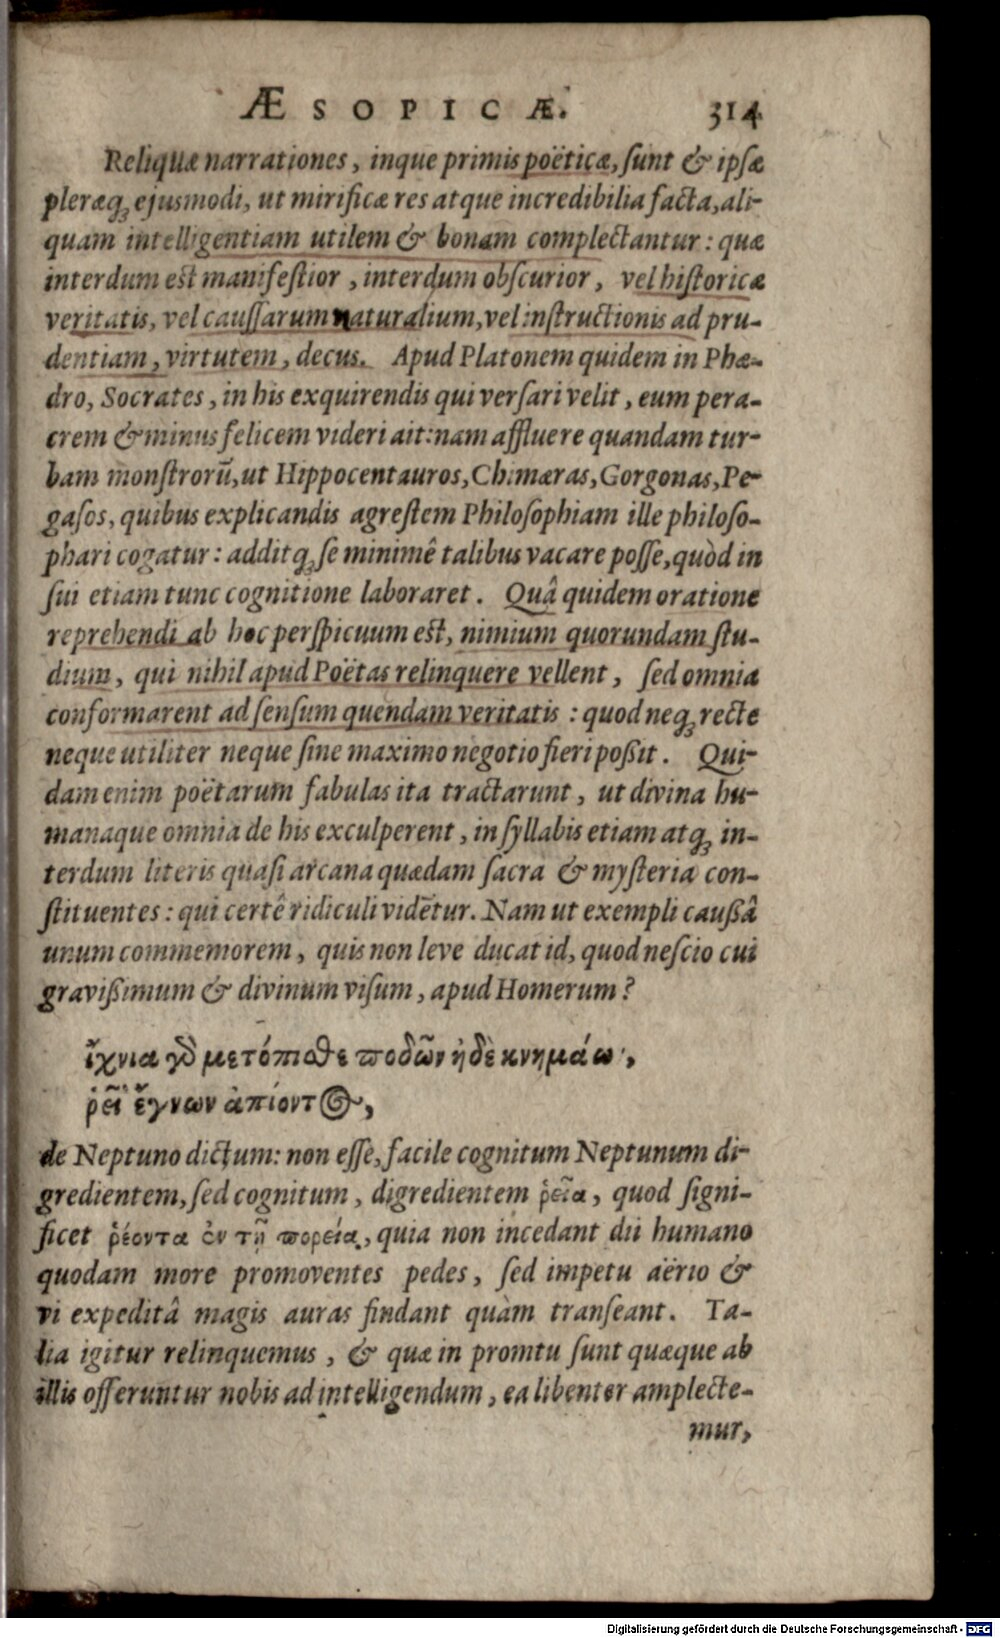 ÆSOPICÆ. 314
Reliquæ narrationes, inque primis poëticæ, ſunt & ipſæ
pleræq; ejusmodi, ut mirificæ res atque incredibilia facta, ali-
quam intelligentiam utilem & bonam complectantur: quæ
interdum est manifeſtior, interdum obſcurior, vel hiſtoricæ
veritatis, vel cauſſarum naturalium, vel inſtructionis ad pru-
dentiam, virtutem, decus. Apud Platonem quidem in Phæ-
dro, Socrates, in his exquirendis qui verſari velit, eum pera-
crem & minus felicem videri ait: nam affluere quandam tur-
bam monſtrorū, ut Hippocentauros, Chimæras, Gorgonas, Pe-
gaſos, quibus explicandis agreſtem Philoſophiam ille philoſo-
phari cogatur: additq; ſe minimê talibus vacare poſſe, quòd in
ſui etiam tunc cognitione laboraret. Quâ quidem oratione
reprehendi ab hoc perſpicuum est, nimium quorundam ſtu-
dium, qui nihil apud Poëtas relinquere vellent, ſed omnia
conformarent ad ſenſum quendam veritatis: quod neq; recte
neque utiliter neque ſine maximo negotio fieri poßit. Qui-
dam enim poëtarum fabulas ita tractarunt, ut divina hu-
manaque omnia de his exculperent, in ſyllabis etiam atq; in-
terdum literis quaſi arcana quædam ſacra & myſteria con-
ſtituentes: qui certê ridiculi vidētur. Nam ut exempli caußâ
unum commemorem, quis non leve ducat id, quod neſcio cui
gravißimum & divinum viſum, apud Homerum?
ἴχνια γὸ μετόπιϑε ποδῶν ἠδὲ κνημάω',
ῥεῖ' ἔγνων ἀπίοντ@,
de Neptuno dictum: non eſſe, facile cognitum Neptunum di-
gredientem, ſed cognitum, digredientem ῥεῖα, quod ſigni-
ficet ῥέοντα ἐν τῇ πορείᾳ, quia non incedant dii humano
quodam more promoventes pedes, ſed impetu aërio &
vi expeditâ magis auras findant quàm tranſeant. Ta-
lia igitur relinquemus, & quæ in promtu ſunt quæque ab
illis offeruntur nobis ad intelligendum, ea libenter amplecte-
mur,
Digitalisierung gefördert durch die Deutsche Forschungsgemeinschaft - DFG